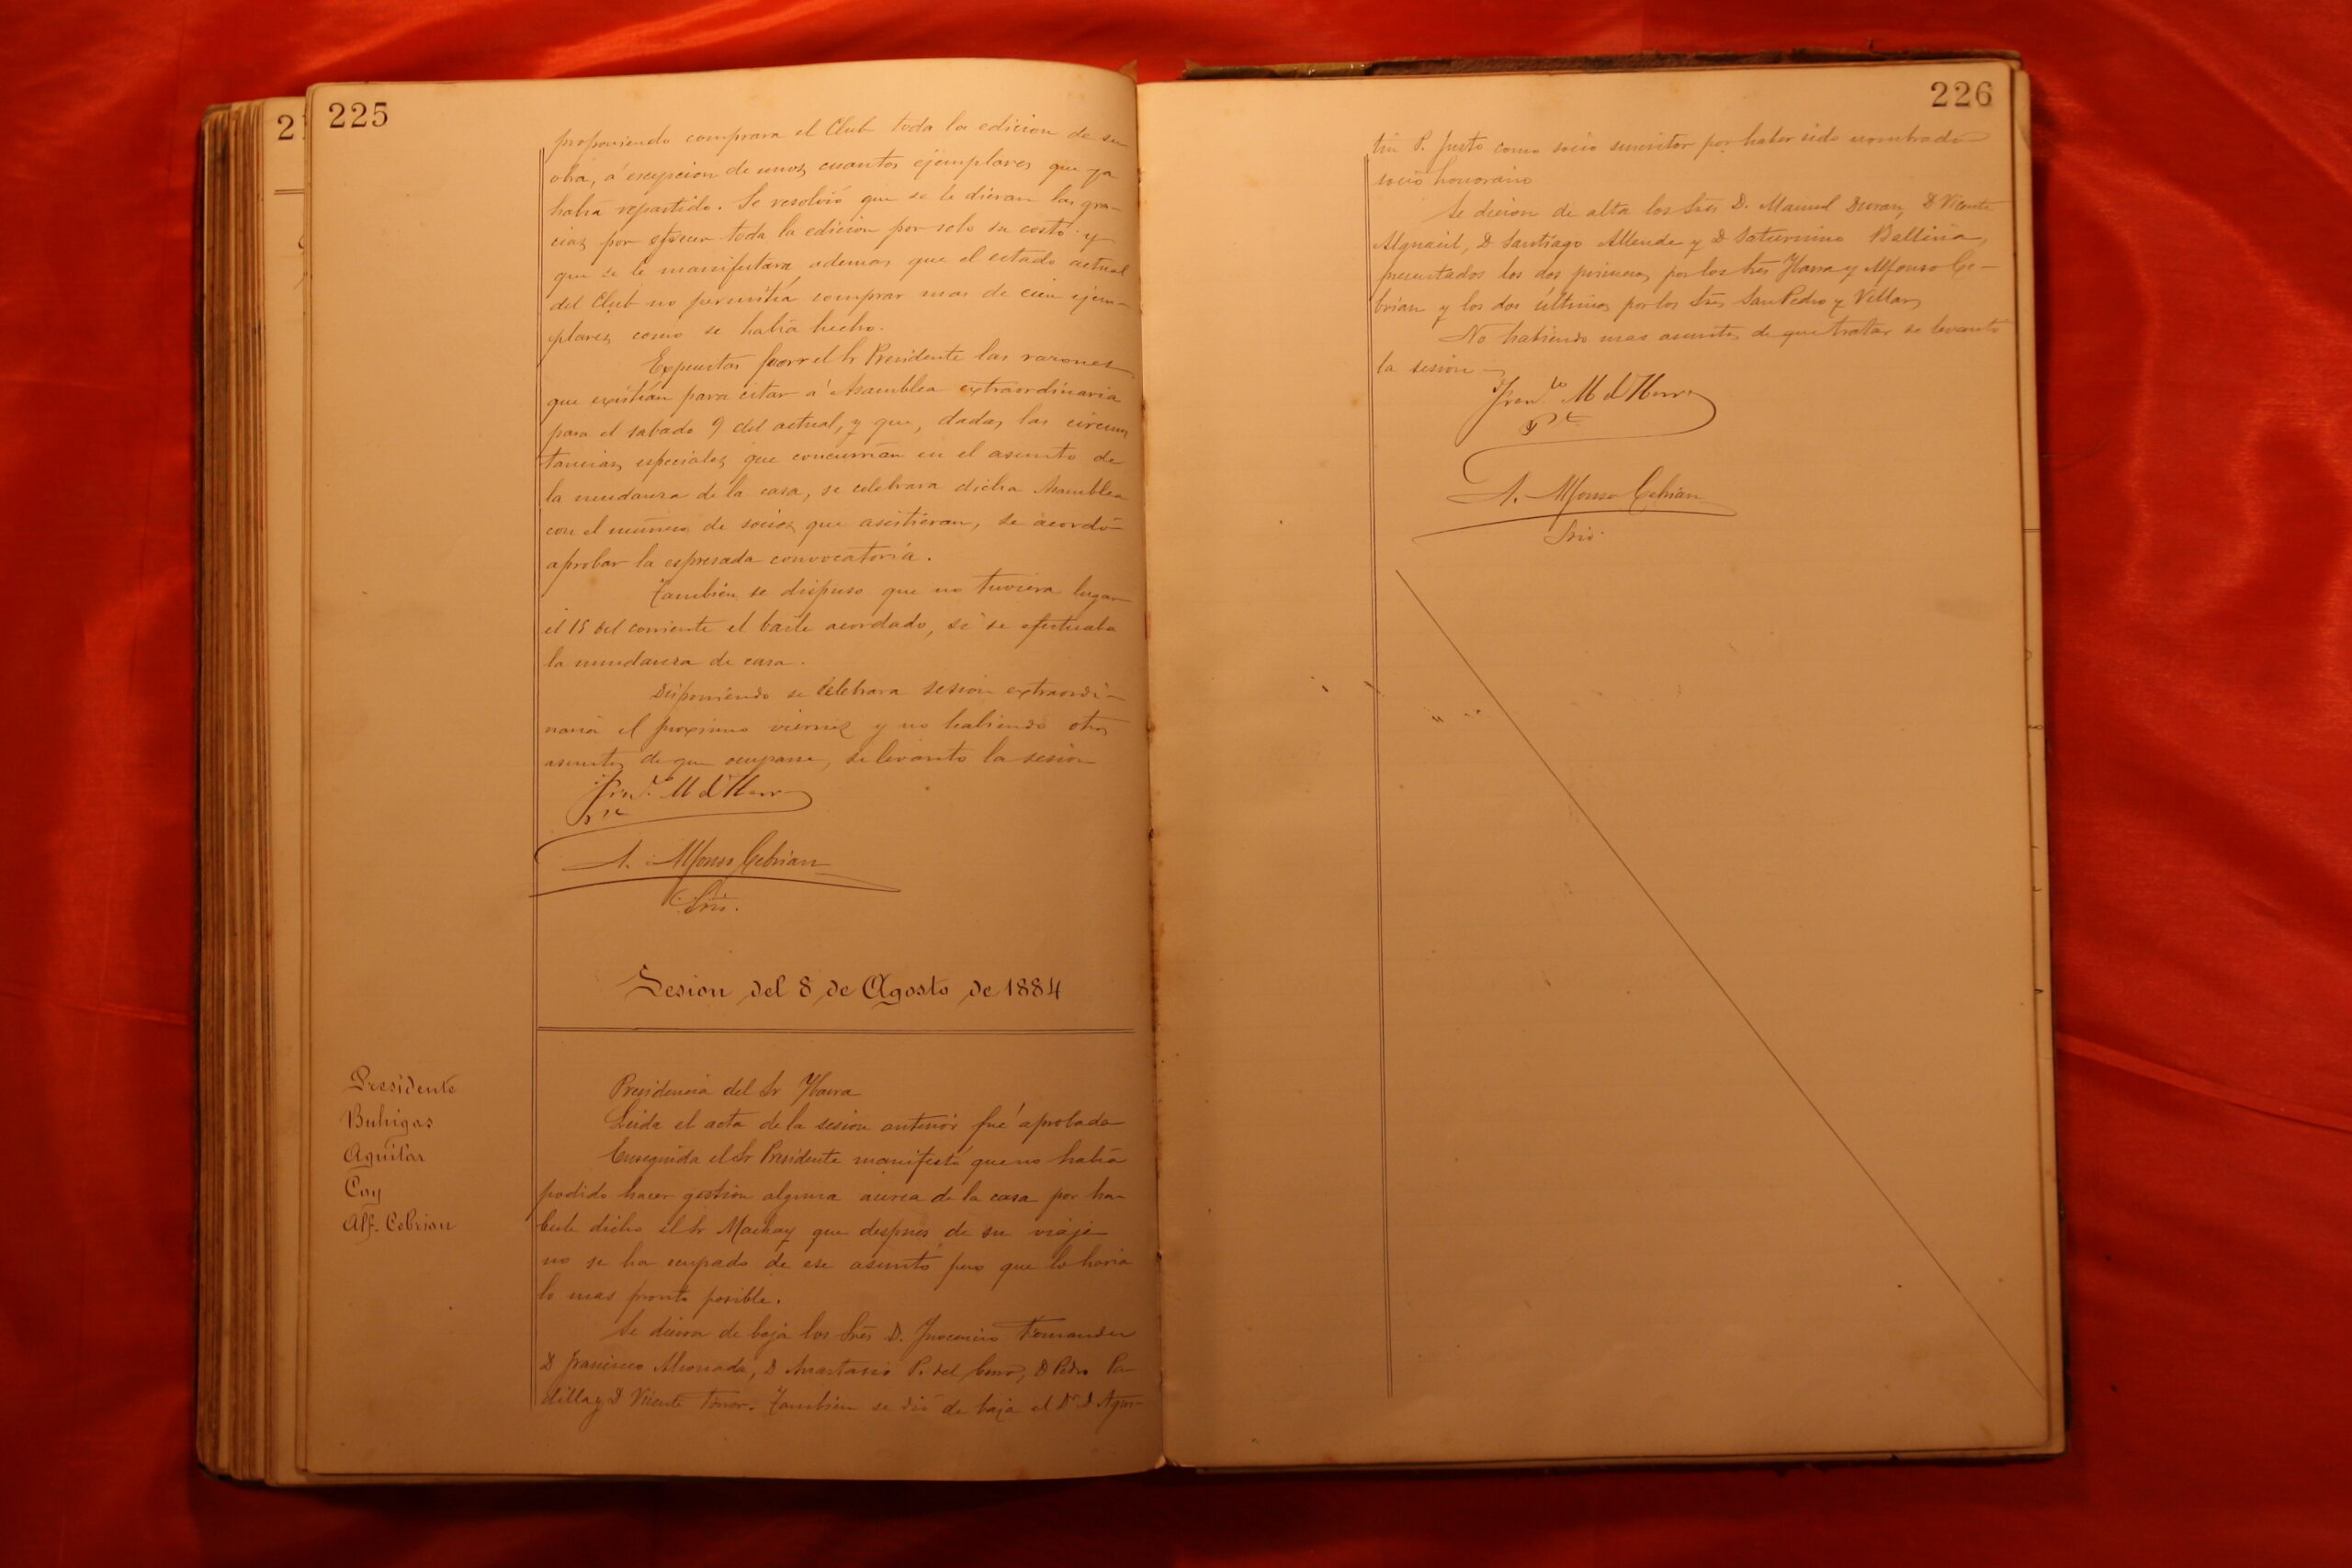 225
proponiendo comprara el Club toda la edicion de su
obra, á escepcion de unos cuantos ejemplares que ya
habia repartido. Se resolvió que se le dieran las gra-
cias por ofrecer toda la edicion por solo su costo y
que se le manifestara ademas que el estado actual
del Club no permitía comprar mas de cien ejem-
plares como se habia hecho.
Expuestas por el Sr Presidente las razones
que existían para citar á Asamblea extraordinaria
para el sabado 9 del actual, y que, dadas las circuns
tancias especiales que concurrían en el asunto de
la mudanza de la casa, se celebrara dicha Asamblea
con el número de socios que asistieran, se acordó
aprobar la espresada convocatoria.
Tambien se dispuso que no tuviera lugar
el 15 del corriente el baile acordado, si se efectuaba
la mudanza de casa.
Disponiendo se celebrara sesion extraordi-
naria el proximo viernes y no habiendo otros
asuntos de que ocuparse, se levantó la sesion
A. Alfonso Cebrian
Srio.
Sesion del 8 de Agosto de 1884
Presidente
Buhigas
Aguilar
Coy
Alf. Cebrian
Presidencia del Sr Ybarra
Leida el acta de la sesion anterior fué aprobada
Enseguida el Sr Presidente manifestó que no habia
podido hacer gestion alguna acerca de la casa por ha-
berle dicho el Sr Mackay que despues de su viaje
no se ha ocupado de ese asunto pero que lo haria
lo mas pronto posible.
Se dieron de baja los Sres D. Inocencio Fernandez
D Francisco D Anastasio P. del D Pedro Pa-
dilla y D Vicente Tambien se dió de baja el Dr D Agus-
226
tin P. Justo como socio suscritor por haber sido nombrado
socio honorario
Se dieron de alta los Sres D. Manuel Duran, D Vicente
Alguacil, D Santiago Allende y D Saturnino Ballina,
presentados los dos primeros por los Sres Ybarra y Alfonso Ce-
brian y los dos últimos por los Sres San Pedro y Villar
No habiendo mas asuntos de que tratar se levantó
la sesion
A. Alfonso Cebrian
Srio.